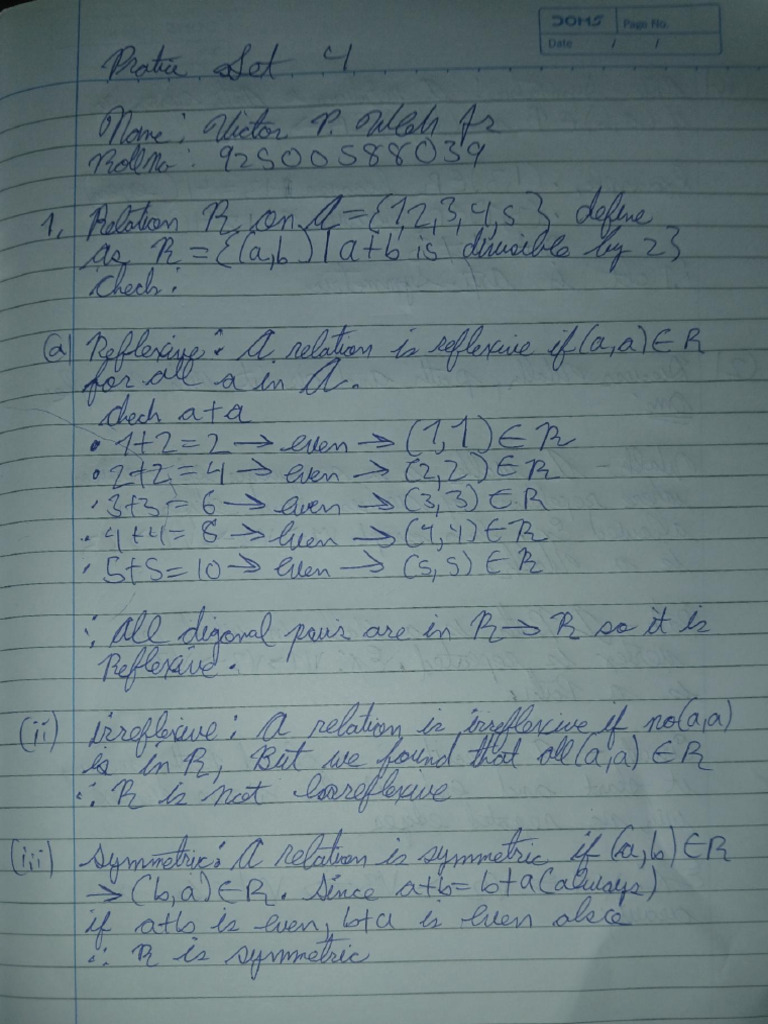 DOMS
Page No.
Date / /
Pratice Set 4
Name: Victor P. Wleh Jr
Roll no: 92500588039
1. Relation R on A={1,2,3,4,5} define
as R={(a,b) | a+b is divisible by 2}
Check:
(a) Reflexive: A relation is reflexive if (a,a) ∈ R
for all a in A.
check a+a
• 1+2=2 → even → (1,1) ∈ R
• 2+2=4 → even → (2,2) ∈ R
• 3+3=6 → even → (3,3) ∈ R
• 4+4=8 → even → (4,4) ∈ R
• 5+5=10 → even → (5,5) ∈ R
∴ All digonal pair are in R → R so it is
Reflexive.
(ii) irreflexive: A relation is irreflexive if no (a,a)
is in R, But we found that all (a,a) ∈ R
∴ R is not irreflexive
(iii) Symmetric: A relation is symmetric if (a,b) ∈ R
→ (b,a) ∈ R. Since a+b=b+a (always)
if a+b is even, b+a is even also
∴ R is symmetric